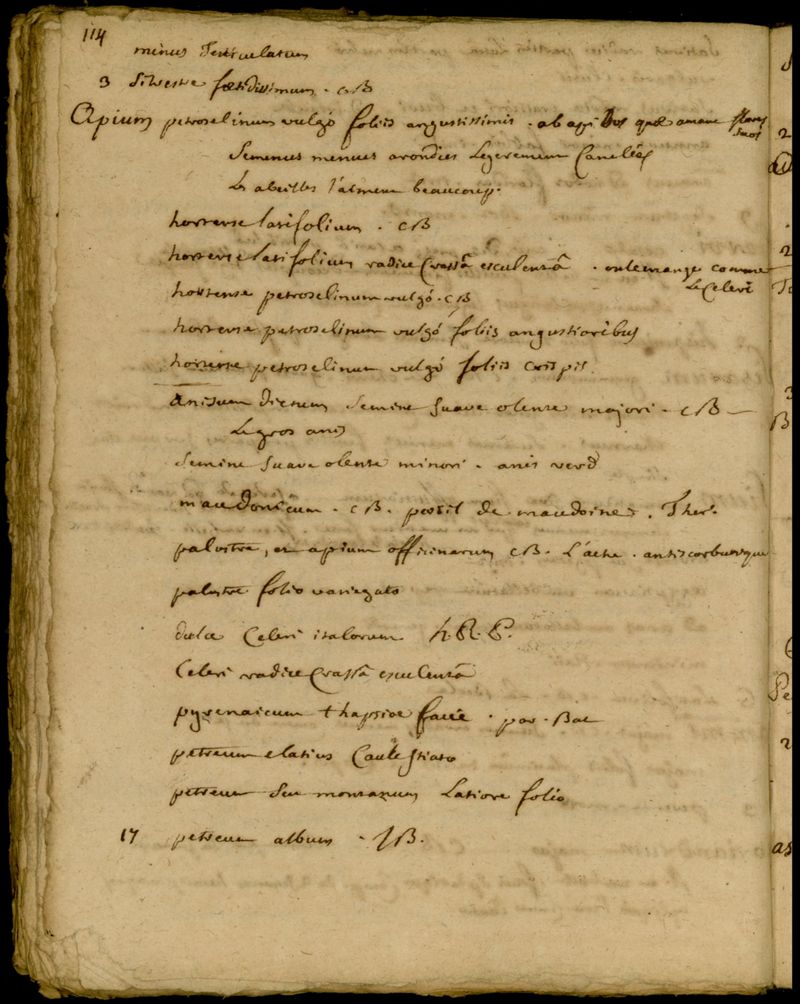 114
minus Testiculatum
3 Silvestre foetidissimum . CB
Apium petroselinum vulgó foliis angustissimis . ab api bus quae amant flores suos
Semences menues arondies Legerement Canelées
Les abeilles l'aiment beaucoup.
hortense latifolium . CB
hortense latifolium radice Crassâ esculentâ . on le mange comme Le Celeri
hortense petroselinum vulgó . CB
hortense petroselinum vulgó foliis angustioribus
hortense petroselinum vulgó foliis crispis.
anisum dictum Semine Suave olente majori . CB
Le gros anis
Semine Suave olente minori . anis verd
macedonicum . CB . persil de macedoine . Ther.
palustre, et apium officinarum CB . L'ache . antiscorbutique
palustre folio variegato
dulce Celeri italorum h. R. P.
Celeri radice Crassâ esculentâ
pyrenaicum thapsiae facie . par . Bat
petraeum elatius Caule Striato
petraeum Seu montanum Latiore folio
17 petraeum album . JB.